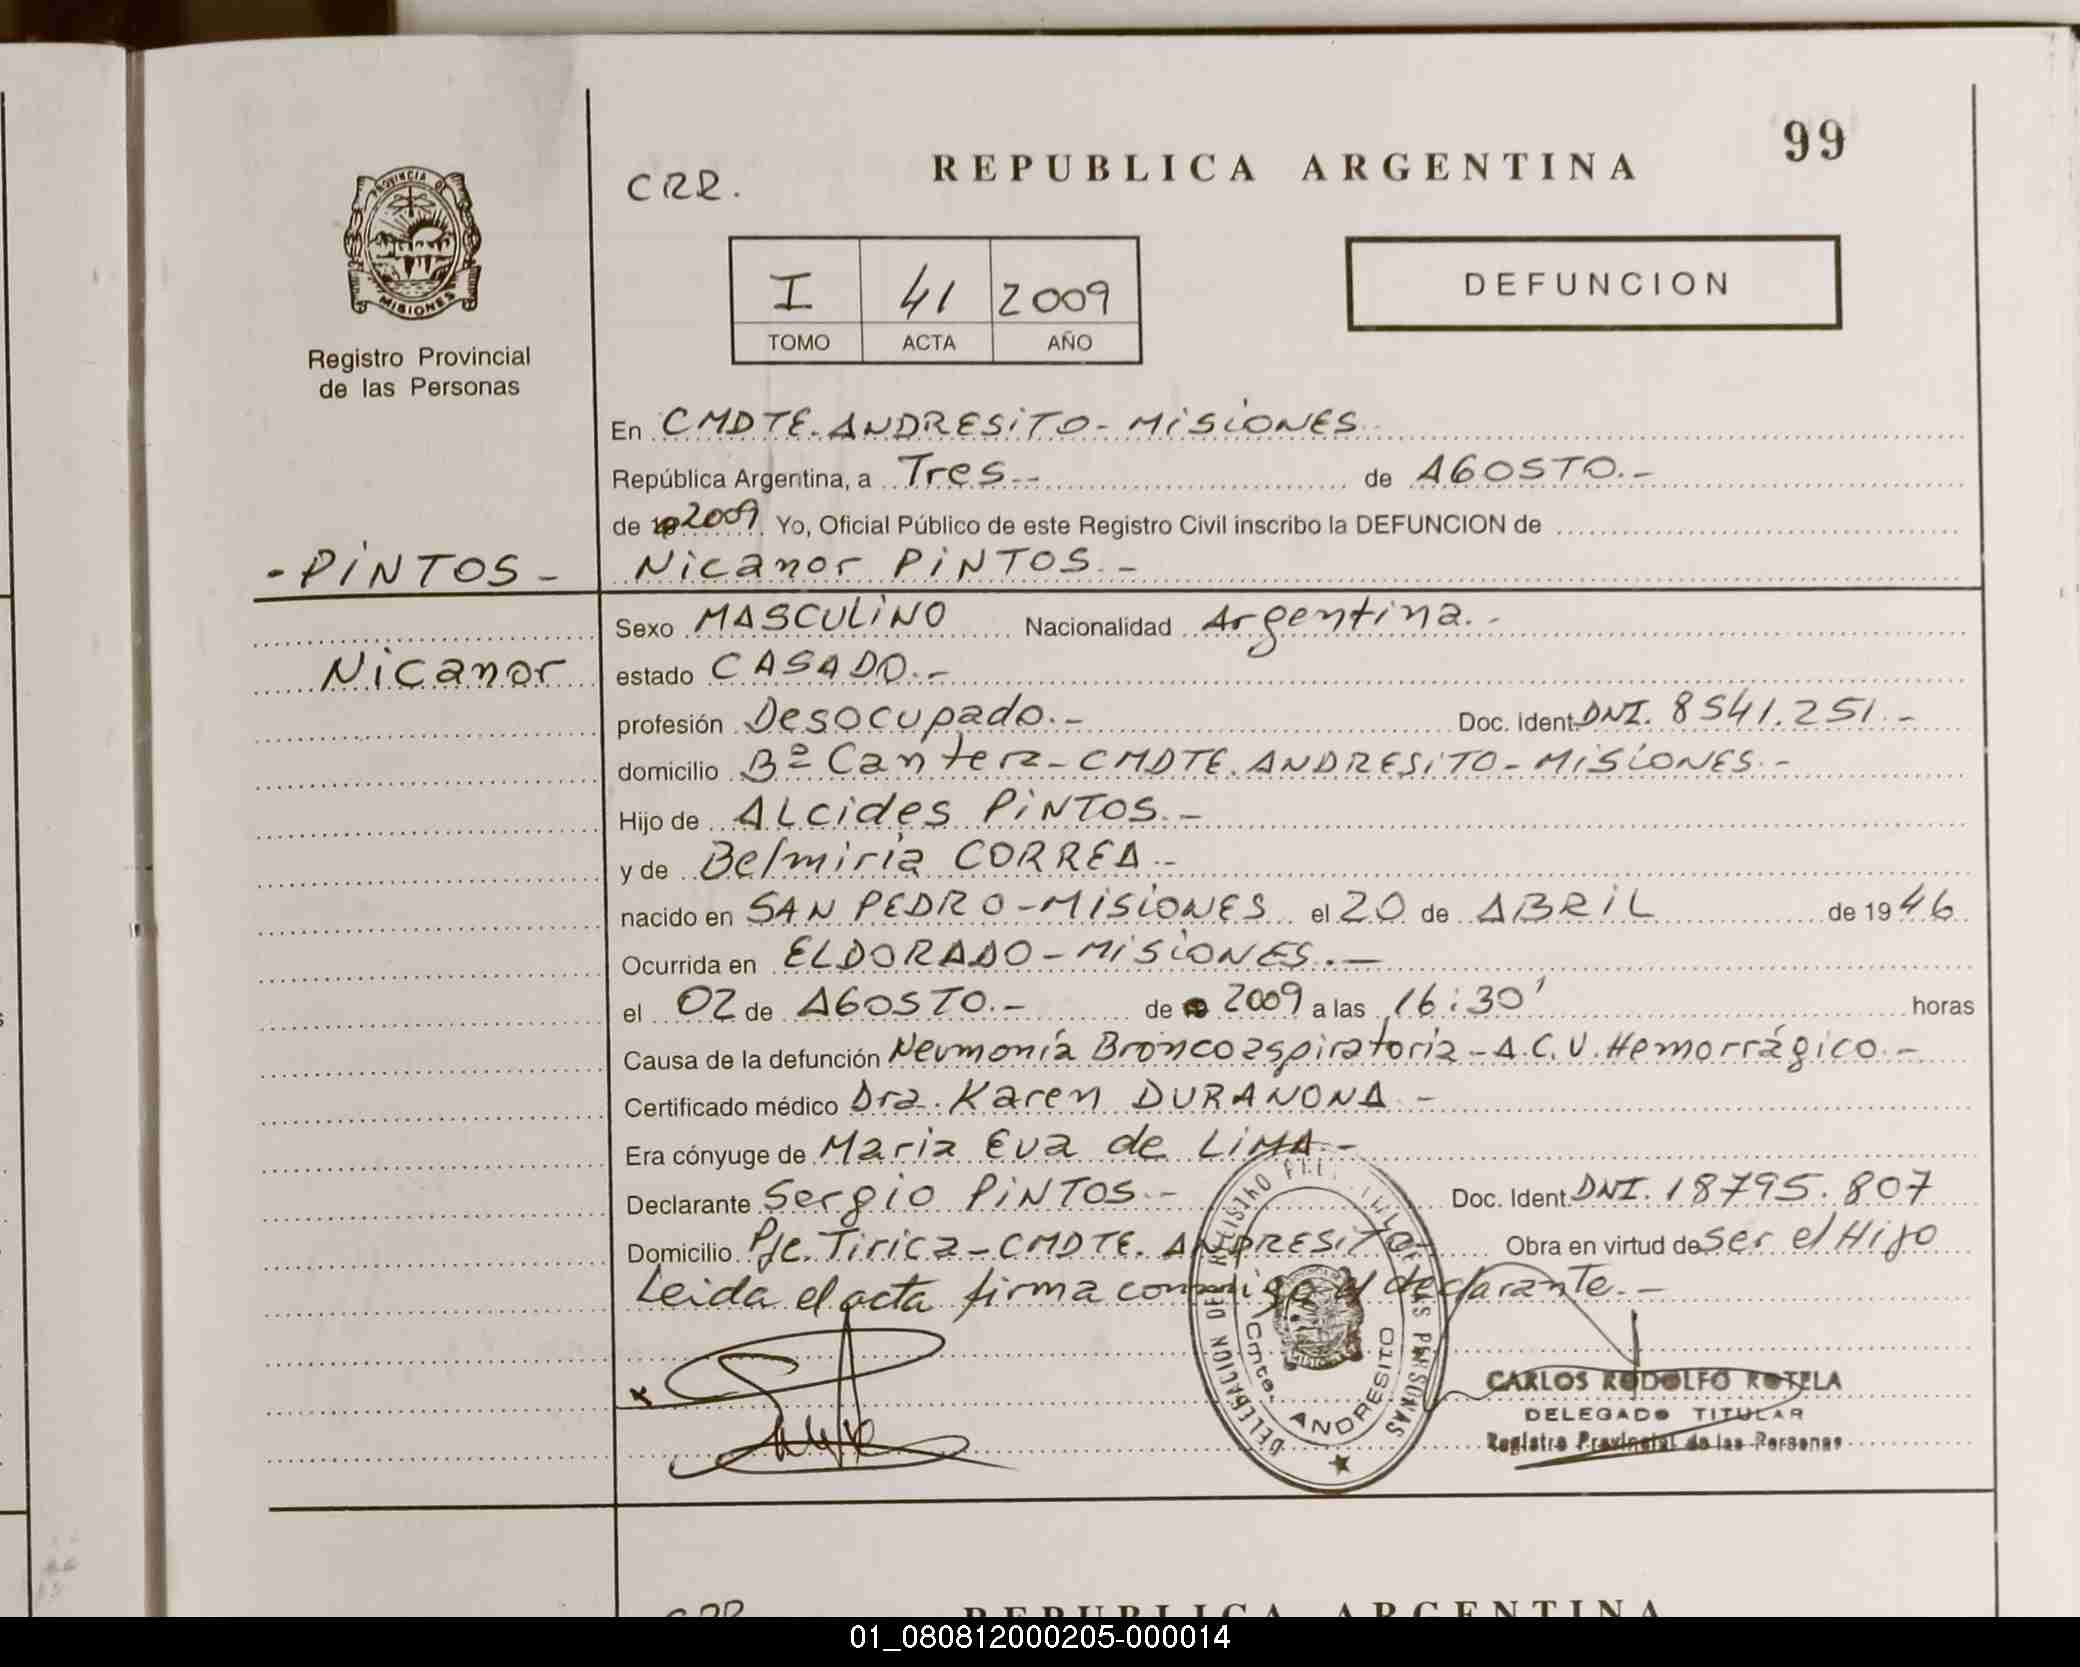 99
REPUBLICA ARGENTINA
CRR.
PROVINCIA DE
MISIONES
Registro Provincial
de las Personas
I 41 2009
TOMO ACTA AÑO
DEFUNCION
En CMDTE. ANDRESiTO - MiSiONES
República Argentina, a Tres.- de AGOSTO.-
de 2009 Yo, Oficial Público de este Registro Civil inscribo la DEFUNCION de
- PiNTOS - Nicanor PiNTOS.-
Sexo MASCULiNO Nacionalidad Argentina.-
Nicanor estado CASADO.-
profesión Desocupado.- Doc. ident. DNI. 8541.251.-
domicilio Bº Cantera - CMDTE. ANDRESiTO - MiSiONES.-
Hijo de ALcides PiNTOS.-
y de Belmiria CORREA.-
nacido en SAN PEDRO - MiSiONES el 20 de ABRiL de 1946
Ocurrida en ELDORADO - MiSiONES.-
el 02 de AGOSTO.- de 2009 a las 16:30' horas
Causa de la defunción Neumonía Broncoaspiratoria - A.C.V. Hemorrágico.-
Certificado médico Dra. Karen DURANONA.-
Era cónyuge de Maria Eva de LiMA.-
Declarante Sergio PiNTOS.- Doc. Ident. DNI. 18795.807
Domicilio Pje. Tirica - CMDTE. ANDRESiTO Obra en virtud de Ser el Hijo
Leida el acta firma conmigo el declarante.-
DELEGACION DEL REGISTRO DE LAS PERSONAS
Cmte. ANDRESITO
CARLOS RODOLFO ROTELA
DELEGADO TITULAR
Registro Provincial de las Personas
CRR
REPUBLICA ARGENTINA
01_080812000205-000014